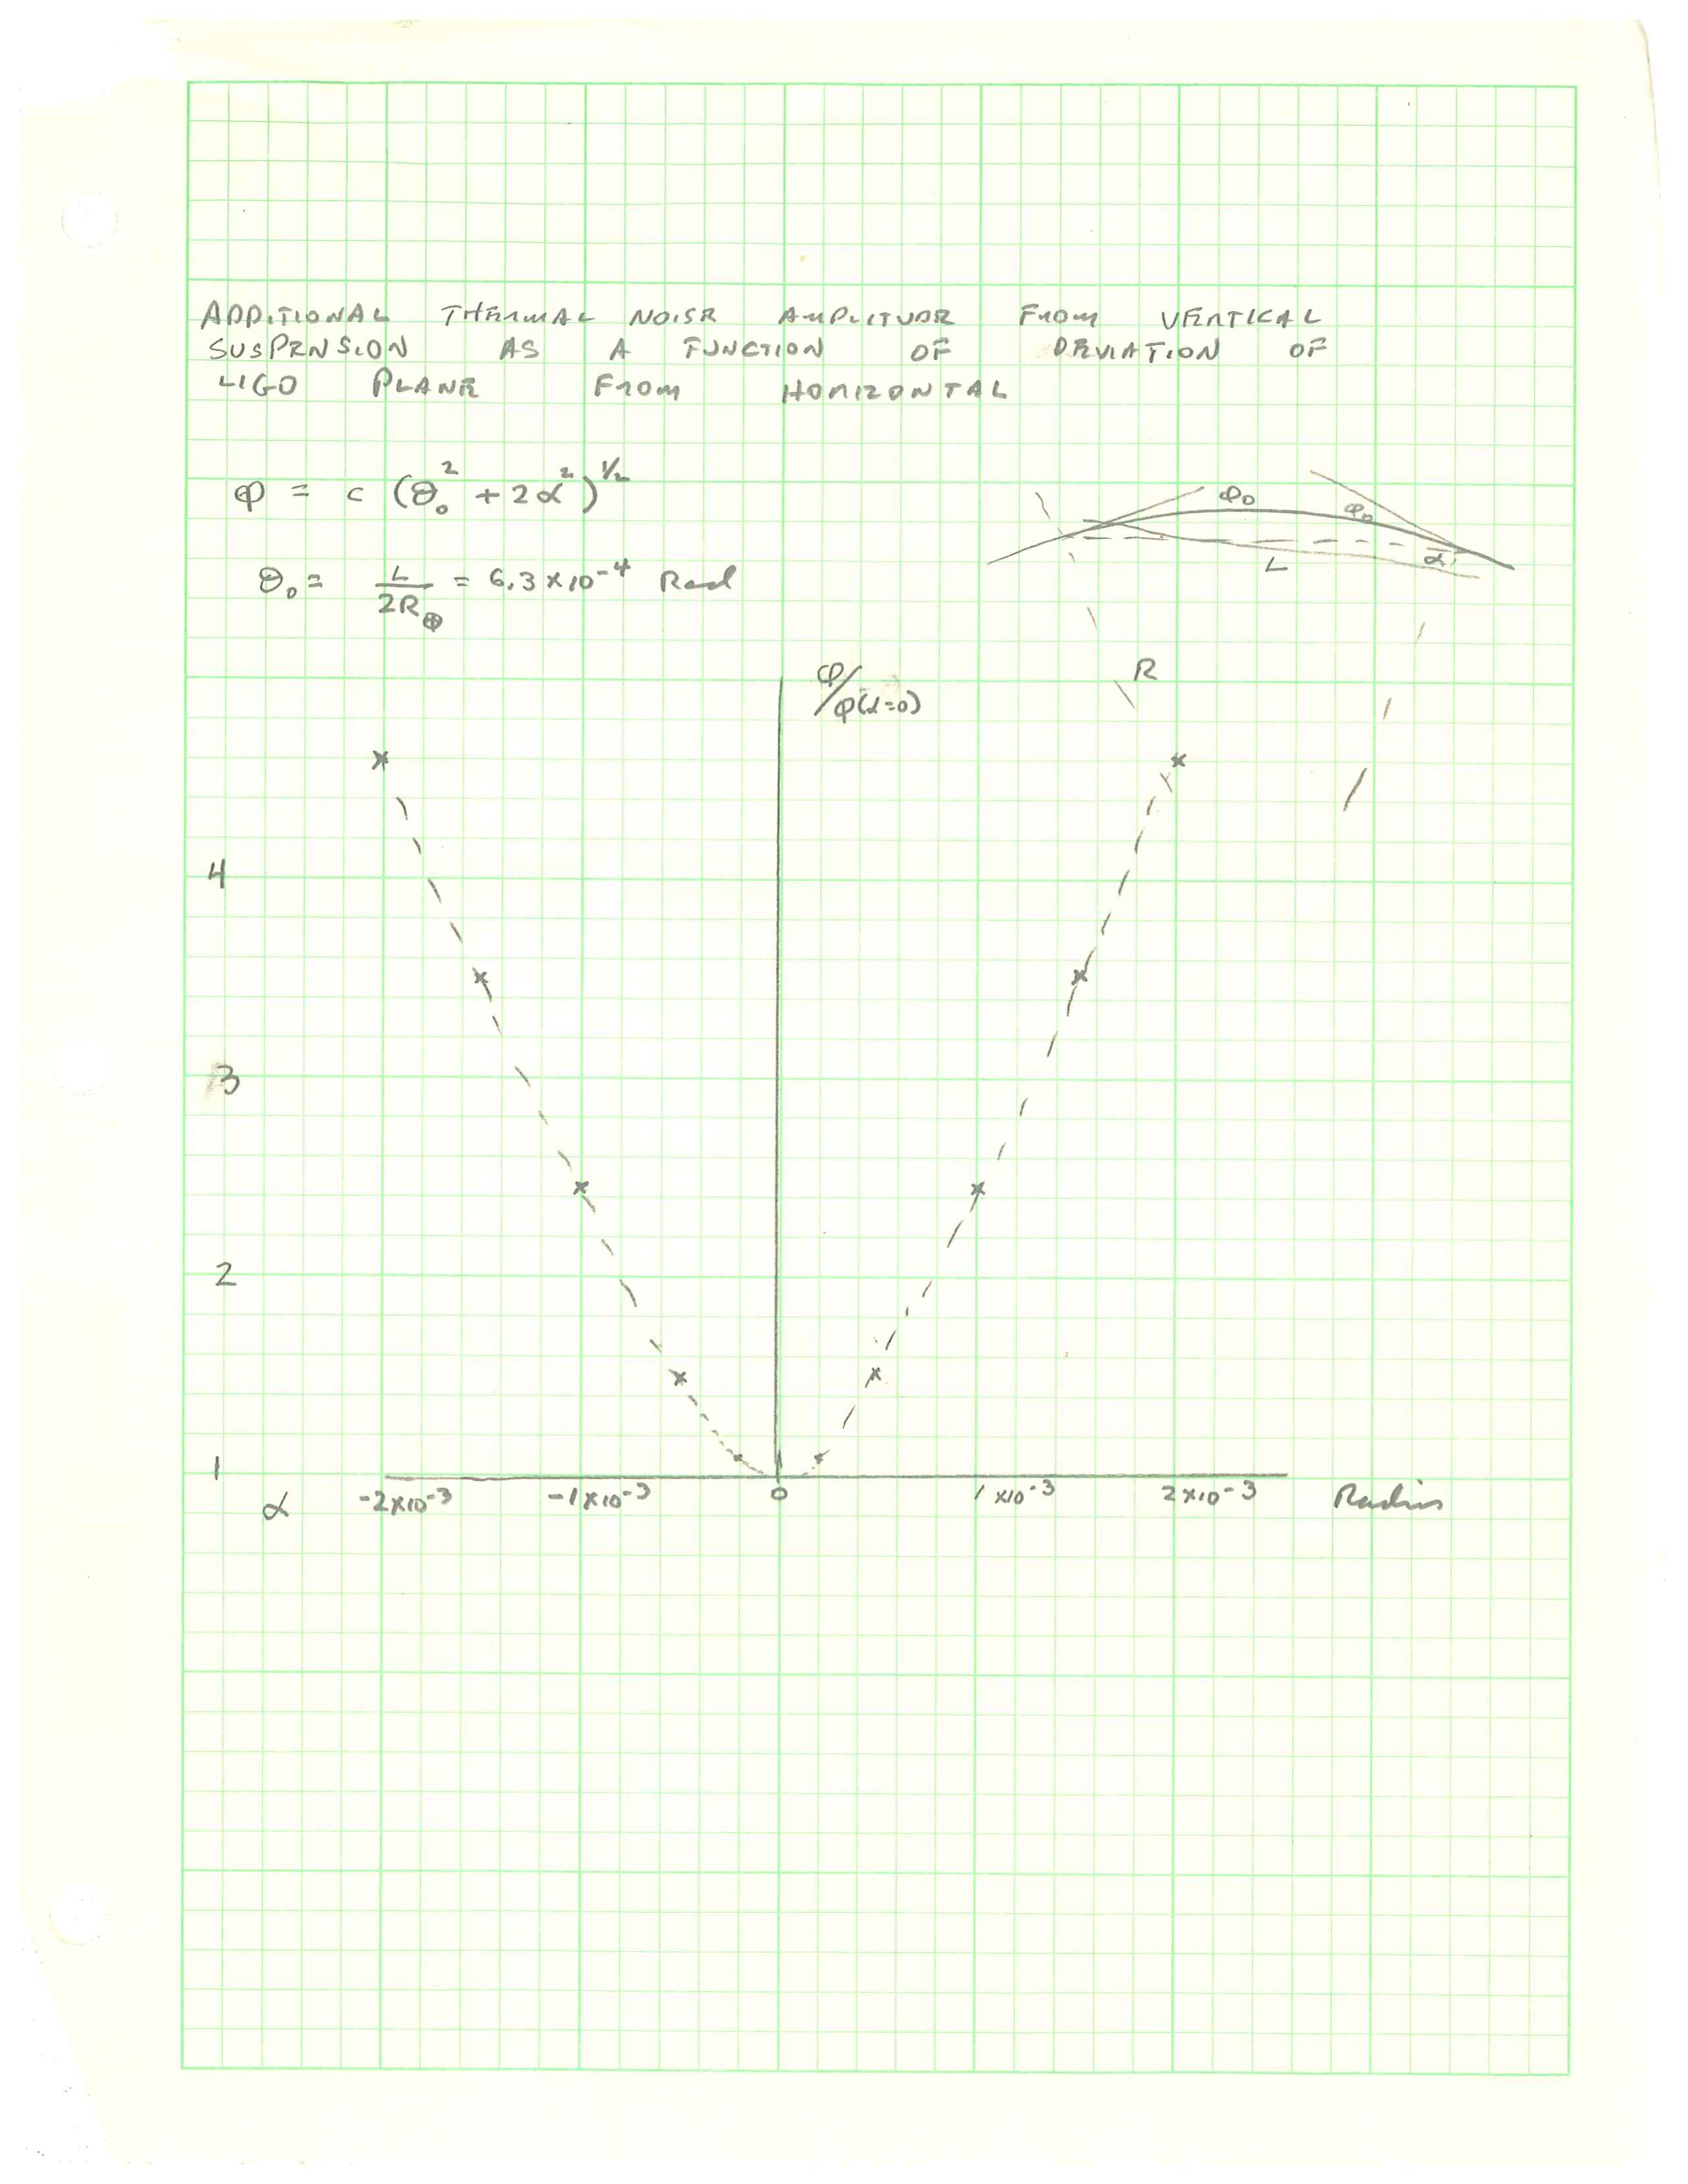 ADDITIONAL THERMAL NOISE AMPLITUDE FROM VERTICAL
SUSPENSION AS A FUNCTION OF DEVIATION OF
LIGO PLANE FROM HORIZONTAL
φ = c (θ₀² + 2α²)^½
θ₀ = L/2R⊕ = 6.3 × 10⁻⁴ Rad
φ₀
φ₀
L
α
R
φ/φ(α=0)
4
3
2
1
α -2×10⁻³ -1×10⁻³ 0 1×10⁻³ 2×10⁻³